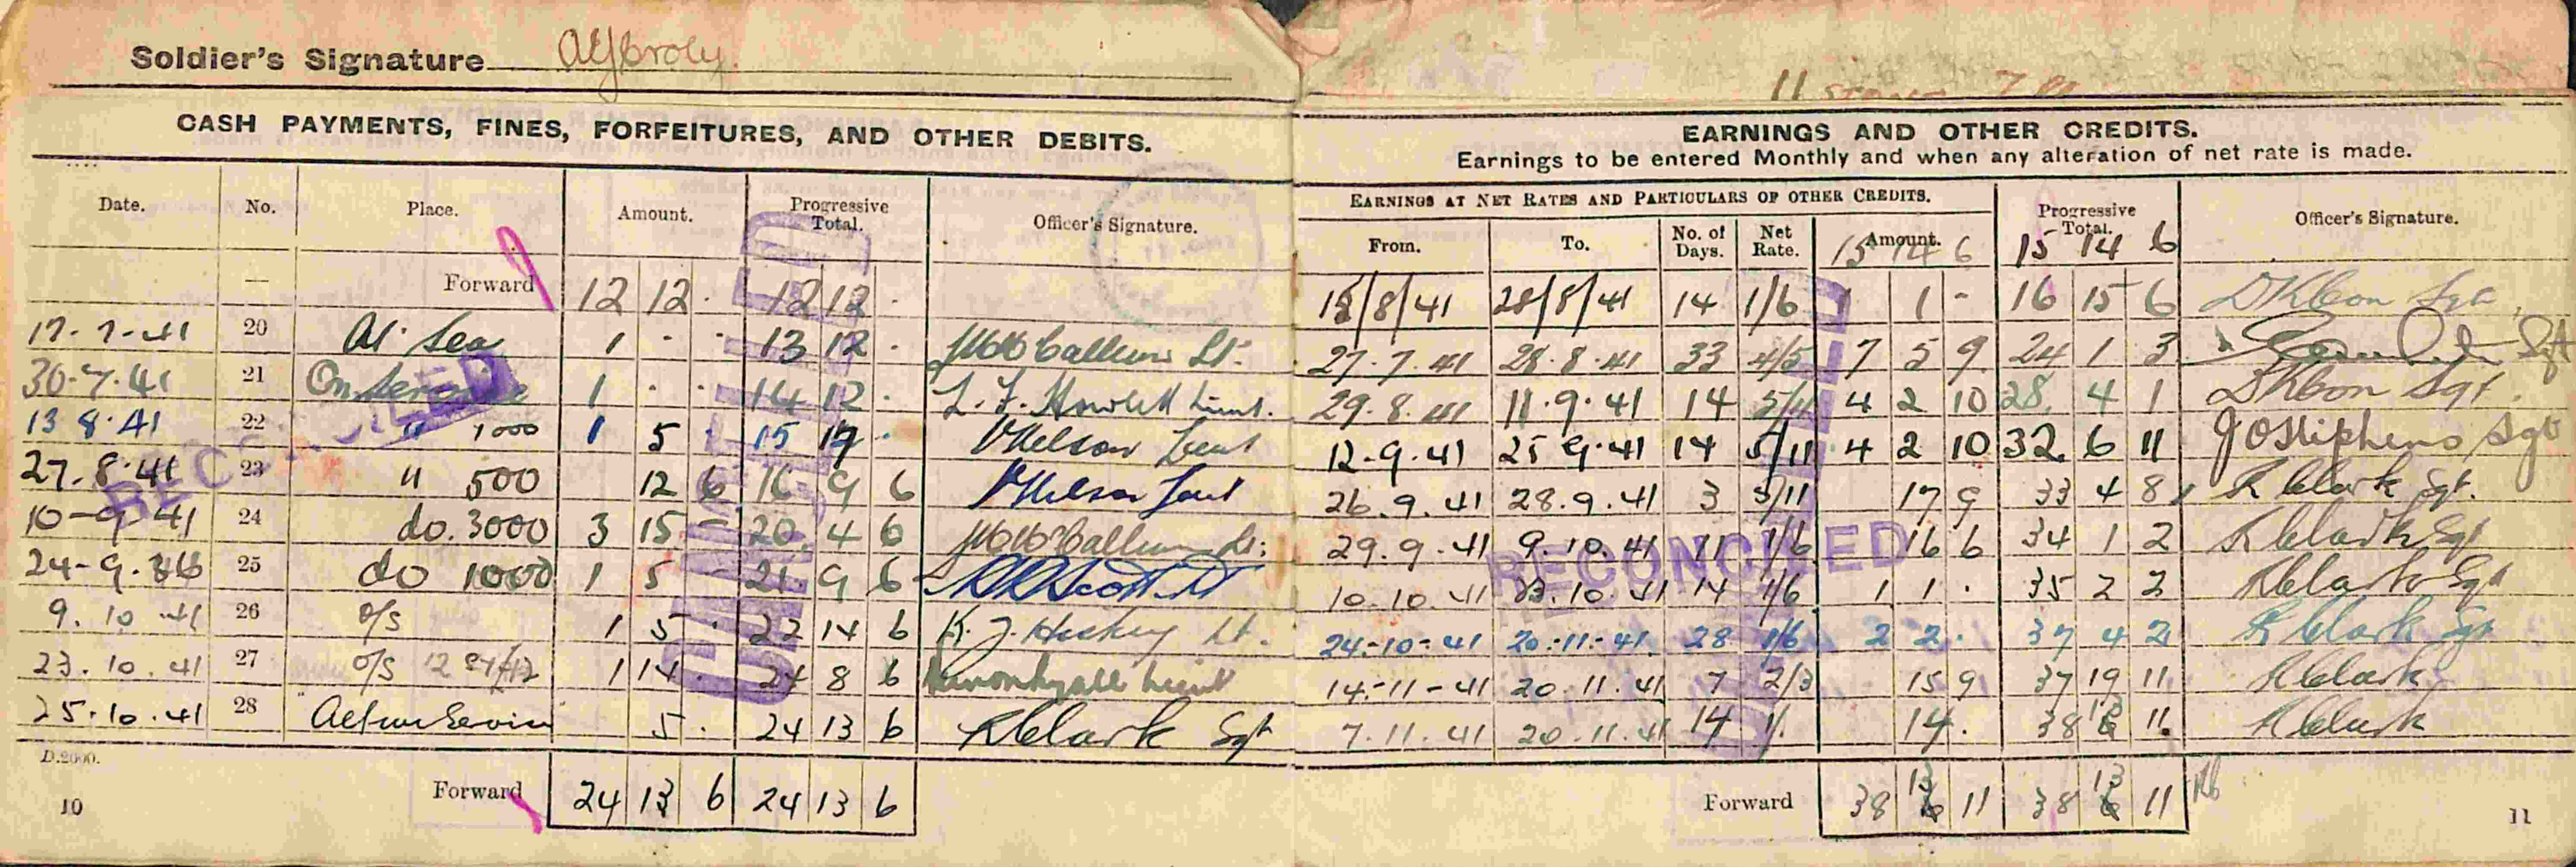 Soldier's Signature
11 stone 7
CASH PAYMENTS, FINES, FORFEITURES, AND OTHER DEBITS.
Date. No. Place. Amount. Progressive Total. Officer's Signature.
— Forward 12 12 . 12 12 .
17-7-41 20 At Sea 1 - - 13 12 . Lt.
30-7-41 21 On Service 1 . . 14 12 . L. F. Howlett Lieut.
13 8 41 22 " 1000 1 5 . 15 17 . Nelson Lieut
27.8.41 23 " 500 12 6 16 9 6 Nelson Lieut
10-9-41 24 do. 3000 3 15 - 20 4 6 Lt.
24-9. 25 do 1000 1 5 - 21 9 6 Scott Lt
9.10.41 26 o/s 1 5 . 22 14 6 K. J. Hickey Lt.
23.10.41 27 o/s 1 14 . 24 8 6 Lieut
25.10.41 28 5 . 24 13 6 R Clark Sgt
D.2000.
Forward 24 13 6 24 13 6
10
RECONCILED
EARNINGS AND OTHER CREDITS.
Earnings to be entered Monthly and when any alteration of net rate is made.
EARNINGS AT NET RATES AND PARTICULARS OF OTHER CREDITS. Progressive Total. Officer's Signature.
From. To. No. of Days. Net Rate. Amount.
15 14 6 15 14 6
15/8/41 28/8/41 14 1/6 1 1 - 16 15 6 Sgt
27.7.41 28.8.41 33 4/5 7 5 9 24 1 3 Sgt
29.8.41 11.9.41 14 5/11 4 2 10 28 4 1 Sgt
12.9.41 25 9.41 14 5/11 4 2 10 32 6 11 J O Stiphens Sgt
26.9.41 28.9.41 3 5/11 17 9 33 4 8 R Clark Sgt.
29.9.41 9.10.41 11 1/6 16 6 34 1 2 R Clark Sgt
10.10.41 23.10.41 14 1/6 1 1 . 35 2 2 R Clark Sgt
24-10-41 20-11-41 28 1/6 2 2 . 37 4 2 R Clark Sgt
14-11-41 20.11.41 7 2/3 15 9 37 19 11 R Clark
7.11.41 20.11.41 14 1/. 14 . 38 13 11 R Clark
Forward 38 13 11 38 13 11
11
RECONCILED